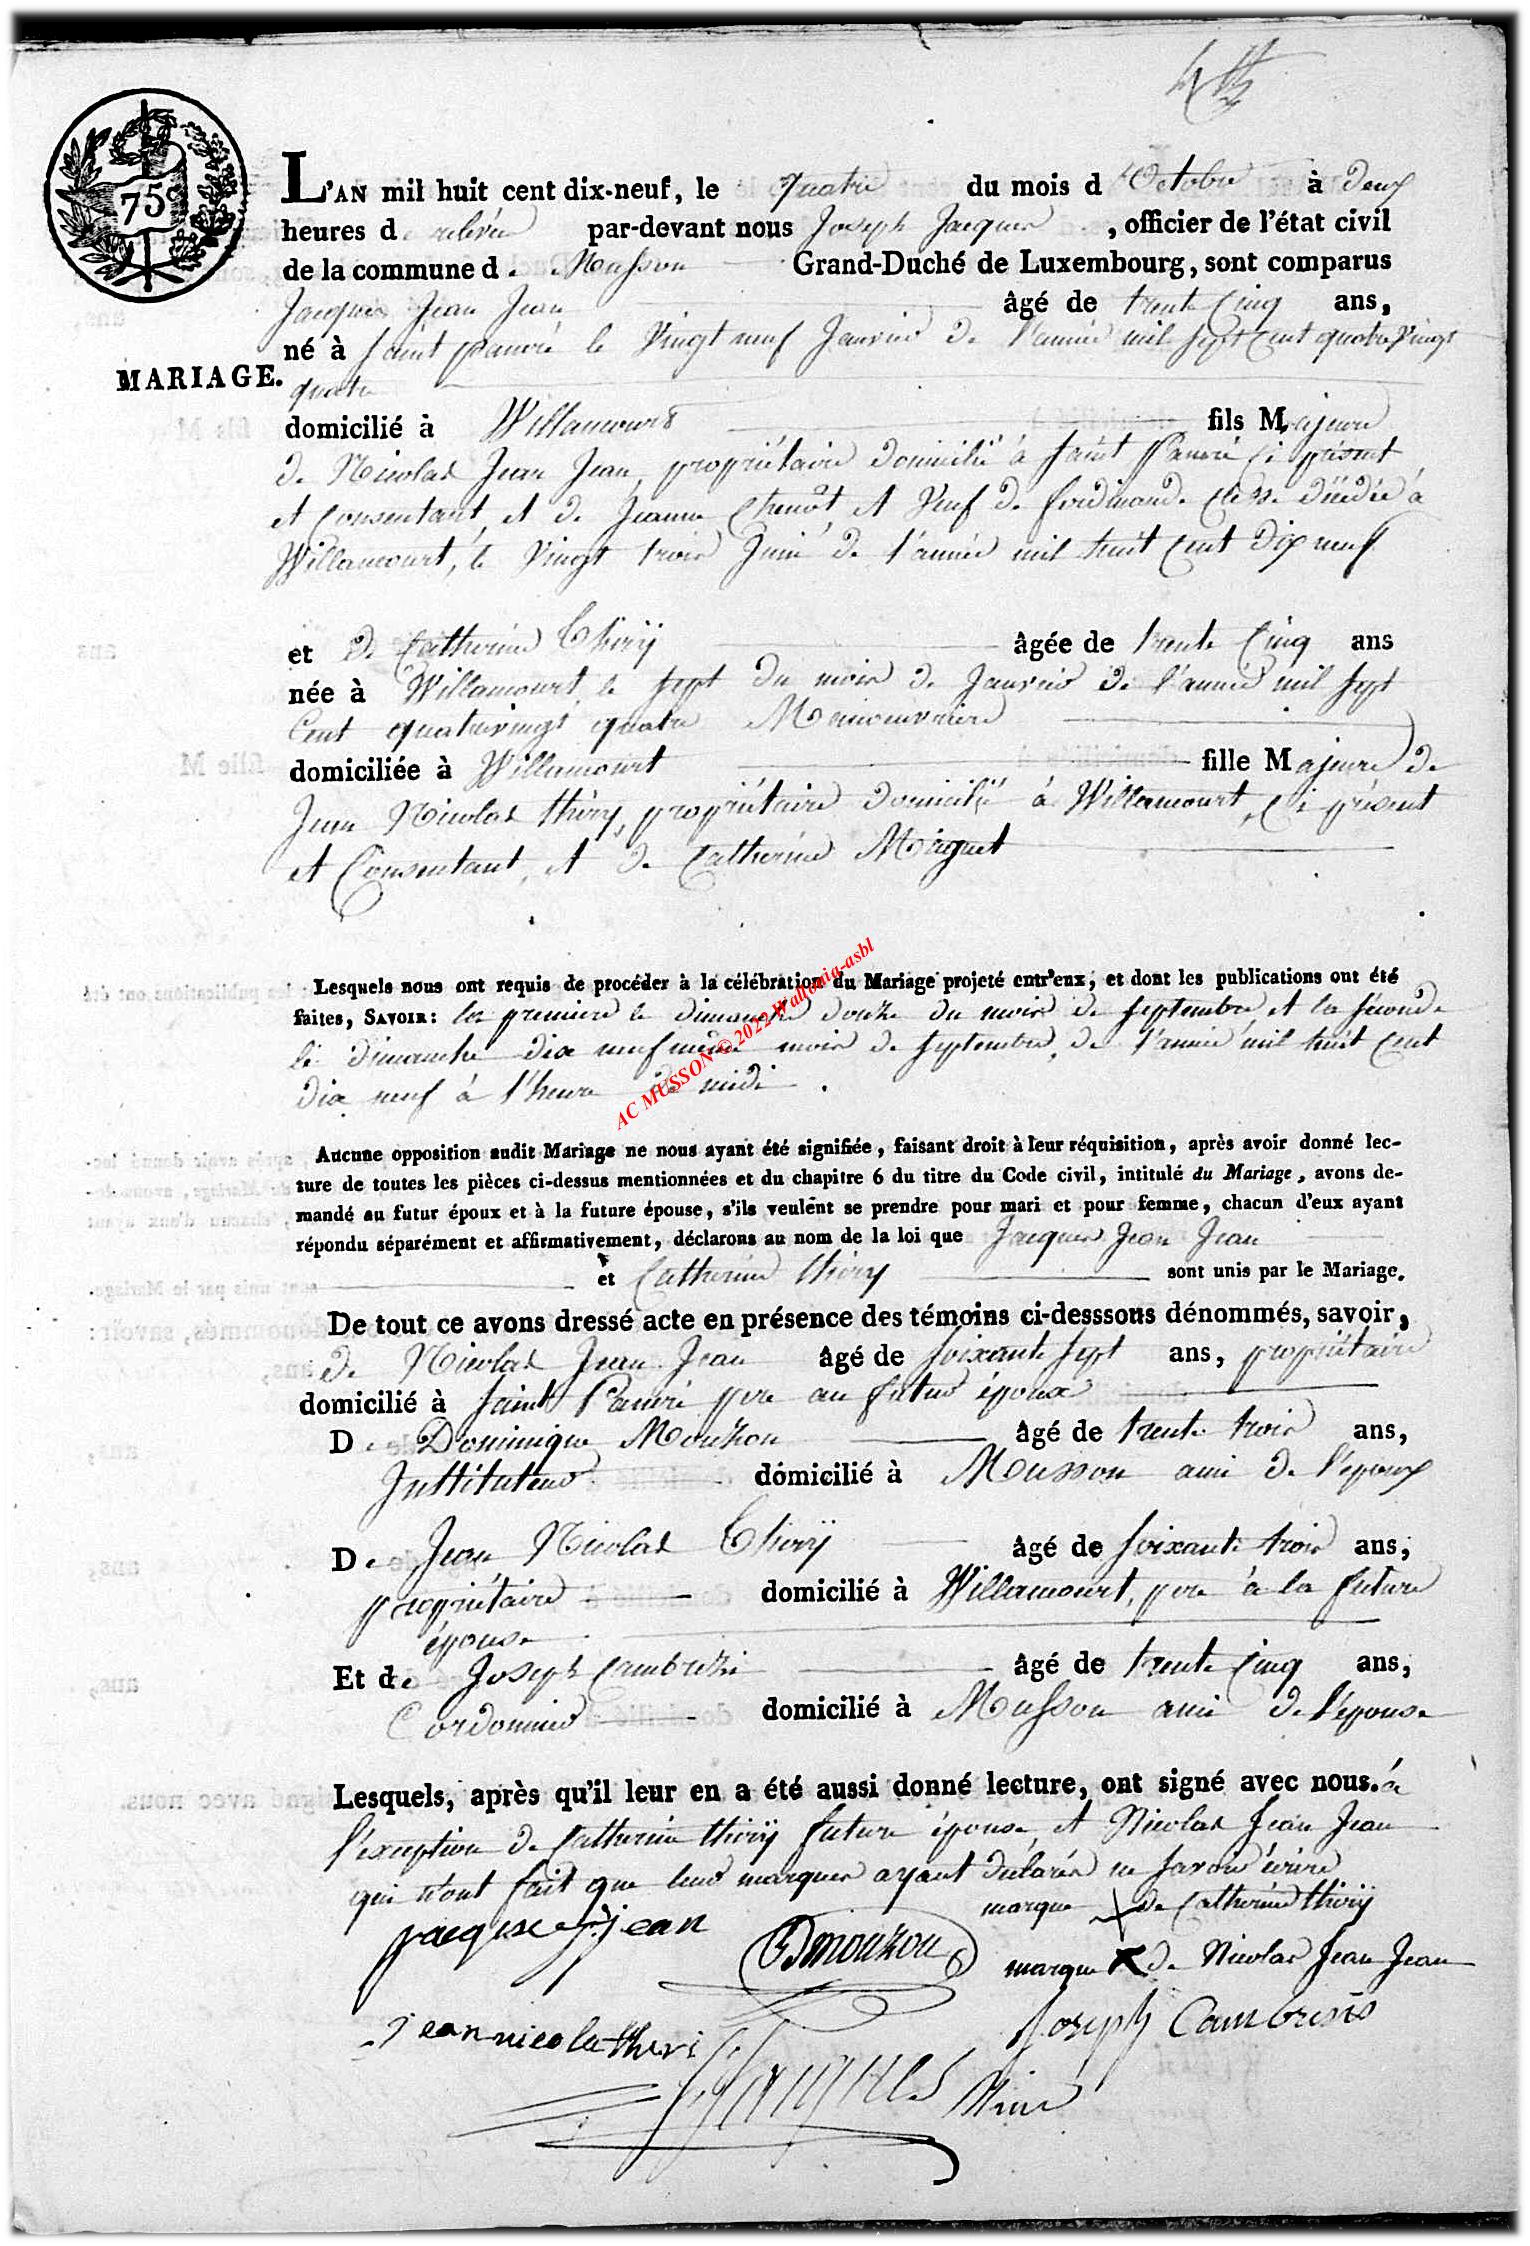 75c
L'AN mil huit cent dix-neuf, le quatre du mois d'Octobre à deux
heures de relévée par-devant nous Joseph Jacques, officier de l'état civil
de la commune de Musson Grand-Duché de Luxembourg, sont comparus
Jacques Jean Jean âgé de trente Cinq ans,
né à Saint pancré le Vingt neuf Janvier de l'année mil sept Cent quatre Vingt
MARIAGE.
quatre
domicilié à Willancourt fils Majeure
de Nicolas Jean Jean, propriétaire domicilié à Saint Pancré Ci présent
et Consentant, et de Jeanne Chenot, et Veuf de ferdinande décédée à
Willancourt, le Vingt trois Juin de l'année mil huit Cent dix neuf
et de Catherine Thiry âgée de trente Cinq ans
née à Willancourt, le sept du mois de Janvier de l'année mil sept
Cent quatrevingt quatre Manouvriere
domiciliée à Willancourt fille Majeure de
Jean Nicolas thiry, propriétaire domicilié à Willancourt, Ci présent
et Consentant, et de Catherine Maguet
Lesquels nous ont requis de procéder à la célébration du Mariage projeté entr'eux, et dont les publications ont été
faites, SAVOIR: la premiere le dimanche douze du mois de Septembre et la seconde
le dimanche dix neuf même mois de septembre, de l'année mil huit Cent
dix neuf à l'heure de midi.
Aucune opposition audit Mariage ne nous ayant été signifiée, faisant droit à leur réquisition, après avoir donné lec-
ture de toutes les pièces ci-dessus mentionnées et du chapitre 6 du titre du Code civil, intitulé du Mariage, avons de-
mandé au futur époux et à la future épouse, s'ils veulent se prendre pour mari et pour femme, chacun d'eux ayant
répondu séparément et affirmativement, déclarons au nom de la loi que Jacques Jean Jean
et Catherine thiry sont unis par le Mariage.
De tout ce avons dressé acte en présence des témoins ci-desssous dénommés, savoir,
de Nicolas Jean Jean âgé de soixante sept ans, propriétaire
domicilié à Saint Pancré pere au futur époux
De Dominique Mouzon âgé de trente trois ans,
Instituteur domicilié à Musson ami de l'epoux
De Jean Nicolas Thiry âgé de soixante trois ans,
propriétaire domicilié à Willancourt, pere à la future
épouse
Et de Joseph Cambresi âgé de trente Cinq ans,
Cordonnier domicilié à Musson ami de l'épouse
Lesquels, après qu'il leur en a été aussi donné lecture, ont signé avec nous. à
l'exception de Catherine thiry future épouse, et Nicolas Jean Jean
qui n'ont fait que leur marques ayant déclarés ne savoir écrire
marque de Catherine thiry
jacque jean jean DMouzon
marque de Nicolas Jean Jean
jean nicolas theri Joseph Cambresis
Jacques Maire
AC MUSSON © 2022 Wallonia-asbl